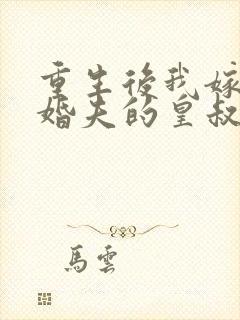 重生後我嫁
婚夫的皇叔
馬雲